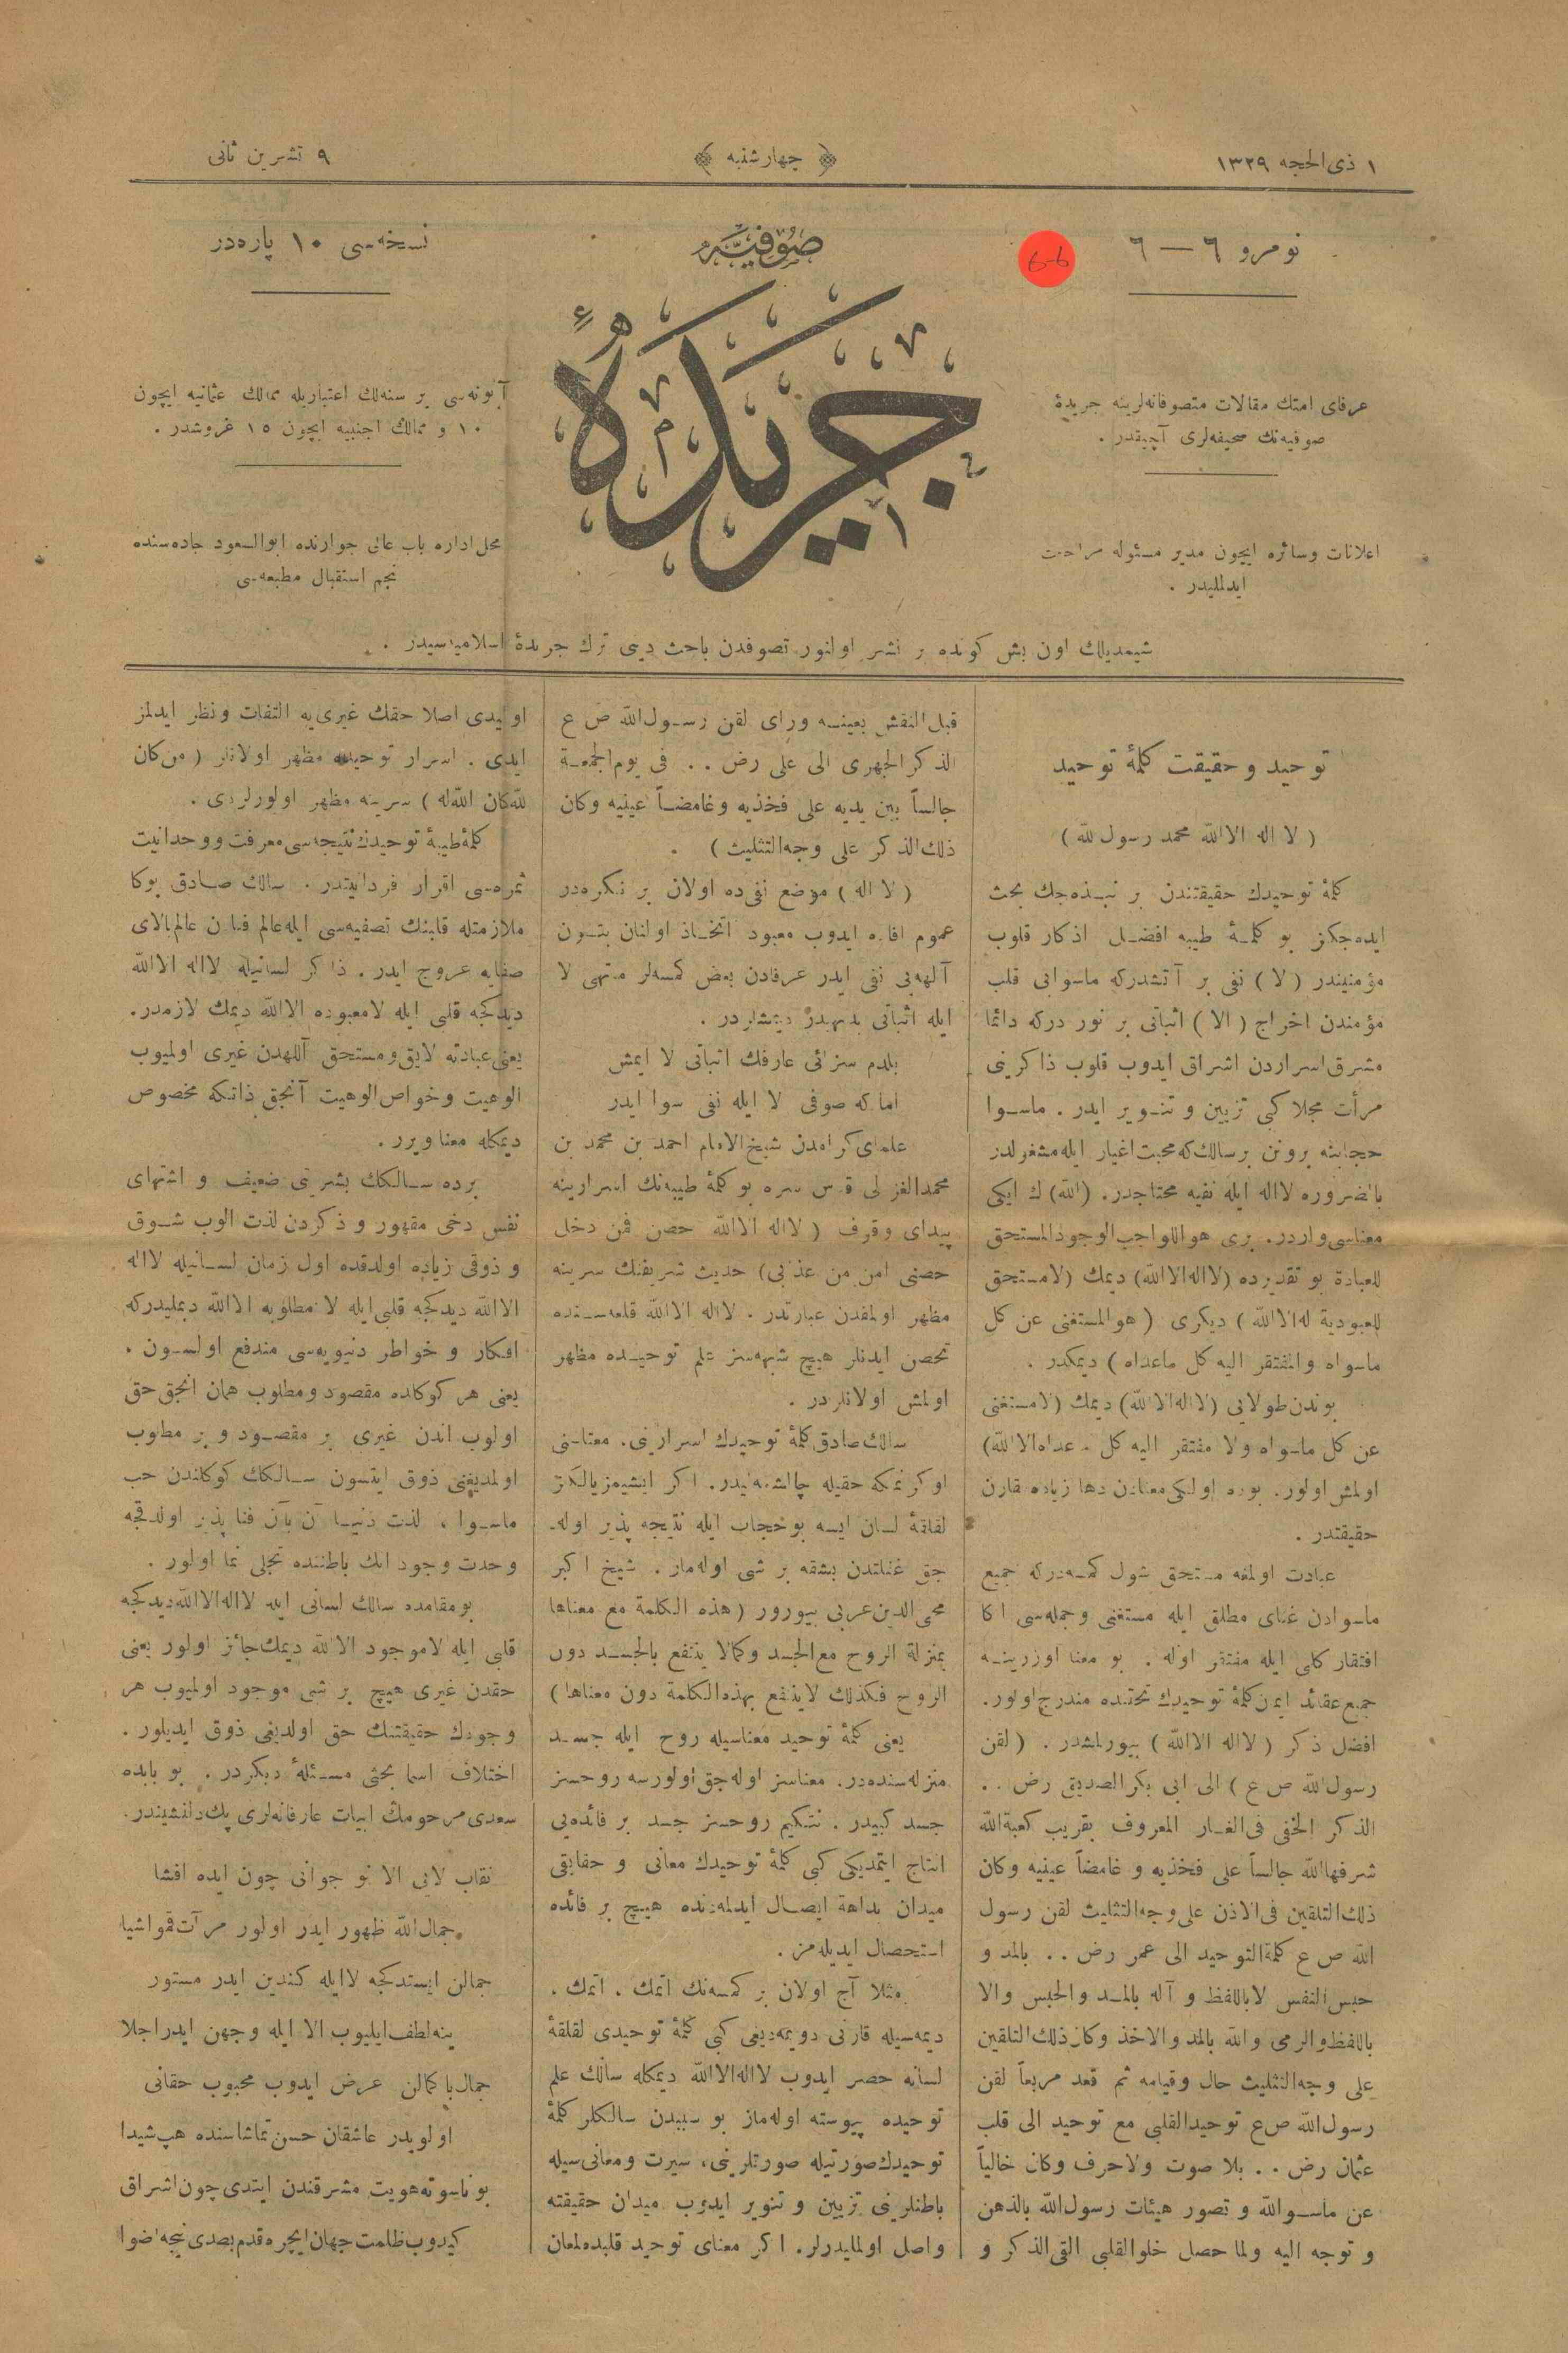 ١ ذی‌الحجه ١٣٢٩
چهارشنبه
٩ تشرین ثانی
نومرو ٦ — ٦
6-6
صوفیه
جریدهٔ
نسخه‌سی ١٠ پاره‌در
عرفای امتك مقالات متصوفانه‌لرینه جریدۀ
صوفیه‌نك صحیفه‌لری آچیقدر .
اعلانات وسائره ایچون مدیر مسئوله مراجعت
ایدلملیدر .
آبونه‌سی بر سنه‌لك اعتباریله ممالك عثمانیه ایچون
١٠ و ممالك اجنبیه ایچون ١٥ غروشدر .
محل اداره باب عالی جوارنده ابوالسعود جاده‌سنده
نجم استقبال مطبعه‌سی
شیمدیلك اون بش كونده بر نشر اولنور تصوفدن باحث دینی ترك جریدۀ اسلامیه‌سیدر .
توحید و حقیقت كلمۀ توحید
( لا اله الا الله محمد رسول لله )
كلمۀ توحیدك حقیقتندن بر نبذه‌جك بحث
ایده‌جكز بو كلمۀ طیبه افضل اذكار قلوب
مؤمنیندر ( لا ) نفی بر آتشدركه ماسوایی قلب
مؤمندن اخراج ( الا ) اثباتی بر نور دركه دائما
مشرق اسراردن اشراق ایدوب قلوب ذاكرینی
مرأت مجلا كبی تزیین و تنویر ایدر . ماسوا
حجابنه برونن برسالك كه محبت اغیار ایله مشغولدر
بالضروره لااله ایله نفیه محتاجدر. (الله) ك ایكی
معناسی واردر. بری هو الواجب الوجود المستحق
للعبادة بو تقدیرده (لااله الا الله) دیمك (لامستحق
للعبودیة له الا الله ) دیكری ( هو المستغنی عن كل
ماسواه والمفتقر الیه كل ماعداه ) دیمكدر .
بوندن طولایی (لااله الا الله) دیمك (لامستغنی
عن كل ماسواه ولا مفتقر الیه كل ماعداه الا الله)
اولمش اولور. بوده اولكی معنادن دها زیاده مقارن
حقیقتدر .
عبادت اولمغه مستحق شول كمسه‌دركه جمیع
ماسوادن غنای مطلق ایله مستغنی وجمله‌سی اكا
افتقار كلی ایله مفتقر اوله . بو معنا اوزرینه
جمیع عقائد ایمن كلمۀ توحیدك تحتنده مندرج اولور.
افضل ذكر ( لااله الا الله ) بیورلمشدر . ( لقن
رسول الله ص ع ) الی ابی بكر الصدیق رض . .
الذكر الخفی فی الغار المعروف بقریب كعبة الله
شرفها الله جالساً علی فخذیه و غامضاً عینیه وكان
ذلك التلقین فی الاذن علی وجه التثلیث لقن رسول
الله ص ع كلمة التوحید الی عمر رض . . بالمد و
حبس النفس لا باللفظ و آله بالمد والحبس والا
باللفظ والرمی والله بالمد والاخذ وكان ذلك التلقین
علی وجه التثلیث حال وقیامه ثم قعد مربعاً لقن
رسول الله ص ع توحید القلبی مع توحید الی قلب
عثمان رض . . بلا صوت ولا حرف وكان خالیاً
عن ماسوالله و تصور هیئات رسول الله بالذهن
و توجه الیه ولما حصل خلو القلبی التی الذكر و
قبل النفس بعینسه ورای لقن رسول الله ص ع
الذكر الجهری الی علی رض . . فی یوم الجمعة
جالساً بین یدیه علی فخذیه وغامضاً عینیه وكان
ذلك الذكر علی وجه التثلیث ) .
( لا اله ) موضع نفی‌ده اولان بر نكره‌در
عموم افاده ایدوب معبود اتخاذ اولنان بتون
آلهه‌یی نفی ایدر عرفادن بعض كمسه‌لر منتهی لا
ایله اثباتی بدیهیدر دیمشلردر .
بلدم سنزئی عارفك اثباتی لا ایمش
اما كه صوفی لا ایله نفی سوا ایدر
علمای كرامدن شیخ الامام احمد بن محمد بن
محمد الغزلی قدس سره بو كلمۀ طیبه‌نك اسرارینه
پیدای وقوف ( لااله الا الله حصن فمن دخل
حصنی امن من عذبی) حدیث شریفنك سرینه
مظهر اولمقدن عبارتدر . لااله الا الله قلعه‌سنده
تحصن ایدنلر هیچ شبهه‌سز علم توحیده مظهر
اولمش اولانلردر .
سالك صادق كلمۀ توحیدك اسرارینی. معناسنی
اوكرنمكه حقیله چالشمه‌لیدر. اكر ایشیمز یالكز
لقلقۀ لسان ایسه بو حجاب ایله نتیجه پذیر اوله‌
جق غفلتدن بشقه بر شی اوله‌ماز . شیخ اكبر
محی الدین عربی بیورور ( هذه الكلمة مع معناها
بمنزلة الروح مع الجسد وكمالا ینتفع بالجسد دون
الروح فكذلك لاینفع بهذه الكلمة دون معناها )
یعنی كلمۀ توحید معناسیله روح ایله جسد
منزله‌سنده‌در. معناسز اوله‌جق اولورسه روحسز
جسد كبیدر . نتكیم روحسز جسد بر فائده‌یی
انتاج ایتمدیكی كبی كلمۀ توحیدك معانی و حقایقی
میدان بداهة ایصال ایدلمه‌نده هیچ بر فائده
استحصال ایدیله‌مز .
مثلا آج اولان بر كمسه‌نك اتمك . اتمك .
دیمه‌سیله قارنی دویمه‌دیغی كبی كلمۀ توحیدی لقلقۀ
لسانه حصر ایدوب لااله الا الله دیمكله سالك علم
توحیده پیوسته اوله‌ماز بو سببدن سالكلر كلمۀ
توحیدك صورتیله صورتلرینی، سیرت ومعانی‌سیله
باطنلرینی تزیین و تنویر ایدوب میدان حقیقته
واصل اولمالیدرلر. اكر معنای توحید قلبده لمعان
اولیدی اصلا حقك غیری‌یه التفات ونظر ایدلمز
ایدی . اسرار توحیده مظهر اولانلر ( من كان
لله كان الله له ) سرینه مظهر اولورلردی .
كلمۀ طیبۀ توحیدك نتیجه‌سی معرفت ووحدانیت
ثمره‌سی اقرار فردانیتدر . سالك صادق بوكا
ملازمتله قلبنك تصفیه‌سی ایله عالم فنادن عالم بالای
صفایه عروج ایدر . ذاكر لسانیله لااله الا الله
دیدكجه قلبی ایله لامعبوده الا الله دیمك لازمدر.
یعنی عبادته لایق ومستحق آللهدن غیری اولمیوب
الوهیت وخواص الوهیت آنجق ذاتكه مخصوص
دیمكله معنا ویرر .
برده سالكك بشرینی ضعیف و اشتهای
نفس دخی مقهور و ذكردن لذت الوب شوق
و ذوقی زیاده اولدقده اول زمان لسانیله لااله
الا الله دیدكجه قلبی ایله لا مطلوبه الا الله دیملیدركه
افكار و خواطر دنیویه‌سی مندفع اولسون .
یعنی هر كوكلده مقصود ومطلوب همان انجق حق
اولوب اندن غیری بر مقصود و بر مطلوب
اولمدیغنی ذوق ایتسون سالكك كوكلندن حب
ماسوا ، لذت دنیا آن بآن فنا پذیر اولدقجه
وحدت وجود انك باطننده تجلی نما اولور .
بو مقامده سالك لسانی ایله لااله الا الله دیدكجه
قلبی ایله لاموجود الا لله دیمك جائز اولور یعنی
حقدن غیری هیچ بر شی موجود اولمیوب هر
وجودك حقیقتنك حق اولدیغی ذوق ایدیلور .
اختلاف اسما بحثی مسئلۀ دیكردر . بو بابده
سعدی مرحومك ابیات عارفانه‌لری پك دلنشیندر.
نقاب لایی الا نو جوانی چون ایده افشا
جمال الله ظهور ایدر اولور مرآت قمو اشیا
جمالن ایستدكجه لا ایله كندین ایدر مستور
ینه لطف ایلیوب الا ایله وجهن ایدر اجلا
جمال با كمالن عرض ایدوب محبوب حقانی
اولویدر عاشقان حسن تماشاسنده هپ شیدا
بو ناسوته هویت مشرقندن ایتدی چون اشراق
كیدوب ظلمت جهان ایچره قدم بصدی نیجه اضوا